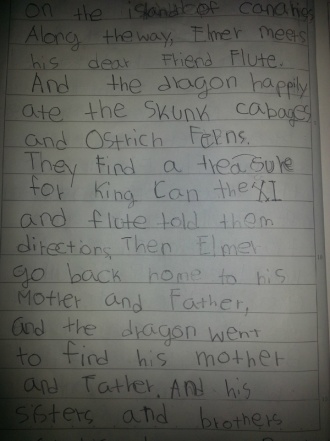 on the island of canaries
Along the way, Elmer meets
his dear Friend Flute.
And the dragon happily
ate the Skunk cabages
and Ostrich Ferns.
They Find a treasure
for King Can the XI
and flute told them
directions. Then Elmer
go back home to his
Mother and Father,
and the dragon went
to find his mother
and Father. And his
sisters and brothers